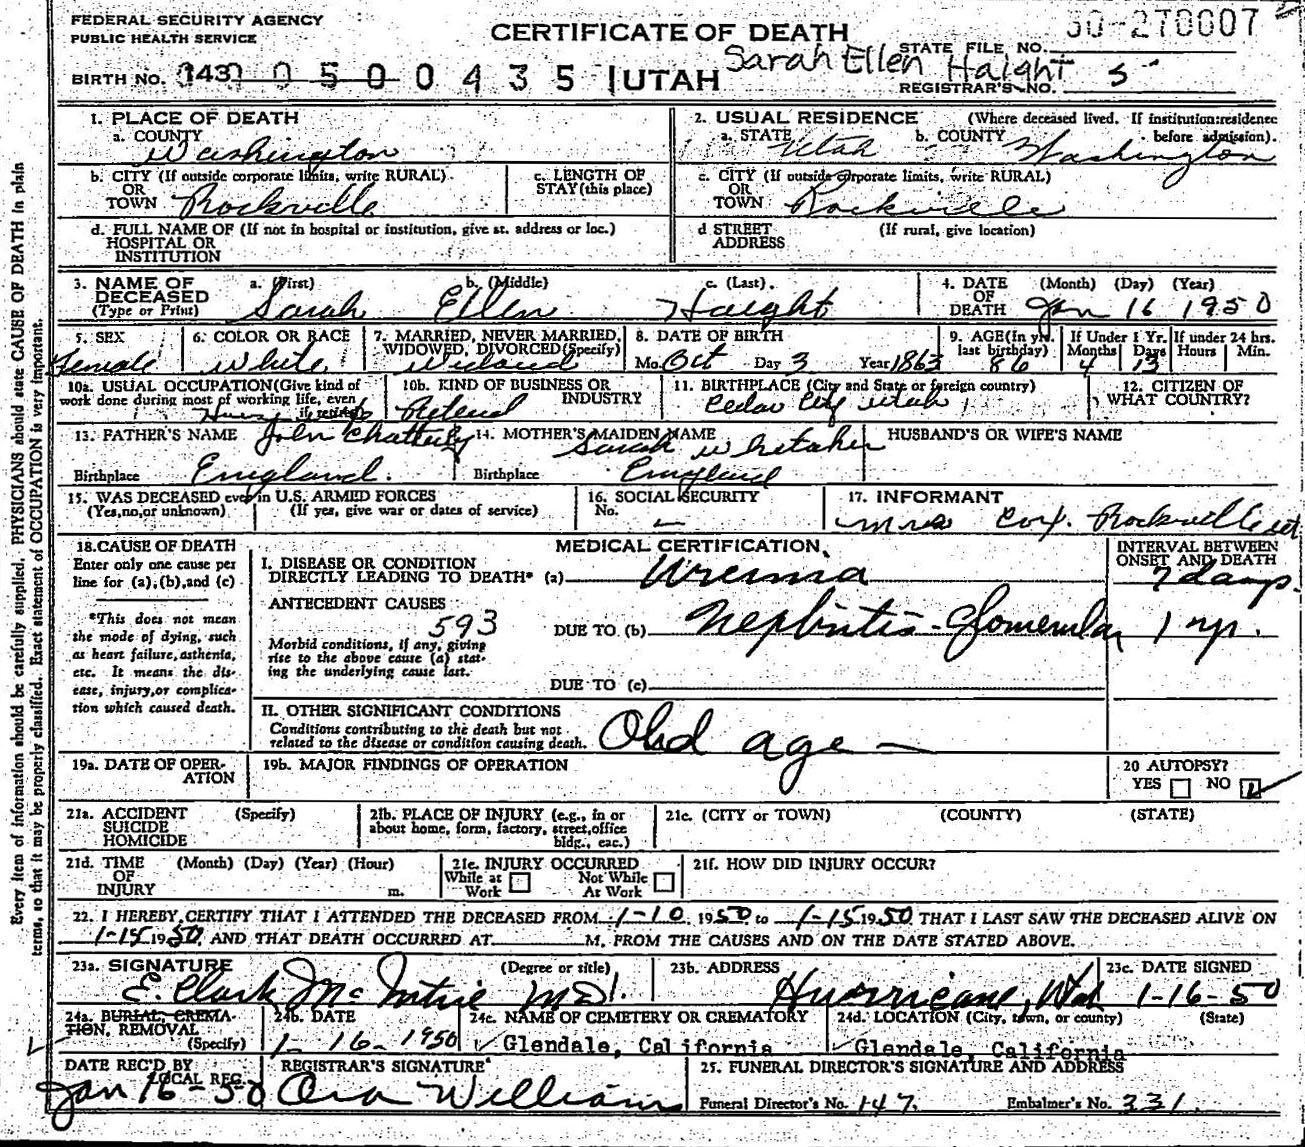 FEDERAL SECURITY AGENCY
PUBLIC HEALTH SERVICE
CERTIFICATE OF DEATH
50-270007
STATE FILE NO.
Sarah Ellen Haight
BIRTH NO. 143 0 0 5 0 0 4 3 5 UTAH
REGISTRAR'S NO. 5
1. PLACE OF DEATH
a. COUNTY Washington
2. USUAL RESIDENCE (Where deceased lived. If institution:residence before admission).
a. STATE Utah b. COUNTY Washington
b. CITY (If outside corporate limits, write RURAL)
OR TOWN Rockville
c. LENGTH OF STAY (this place)
c. CITY (If outside corporate limits, write RURAL)
OR TOWN Rockville
d. FULL NAME OF (If not in hospital or institution, give st. address or loc.)
HOSPITAL OR INSTITUTION
d STREET ADDRESS (If rural, give location)
3. NAME OF DECEASED (Type or Print)
a. (First) Sarah b. (Middle) Ellen c. (Last) Haight
4. DATE OF DEATH (Month) (Day) (Year)
Jan 16 1950
5. SEX Female
6. COLOR OR RACE White
7. MARRIED, NEVER MARRIED, WIDOWED, DIVORCED (Specify) Widowed
8. DATE OF BIRTH
Mo. Oct Day 3 Year 1863
9. AGE (In yrs. last birthday) 86
If Under 1 Yr. Months 4 Days 13
If under 24 hrs. Hours Min.
10a. USUAL OCCUPATION (Give kind of work done during most of working life, even if retired)
10b. KIND OF BUSINESS OR INDUSTRY
11. BIRTHPLACE (City and State or foreign country)
Cedar City Utah
12. CITIZEN OF WHAT COUNTRY?
13. FATHER'S NAME John Chatterley
Birthplace England.
14. MOTHER'S MAIDEN NAME Sarah Whitaker
Birthplace England
HUSBAND'S OR WIFE'S NAME
15. WAS DECEASED ever in U.S. ARMED FORCES
(Yes,no,or unknown) (If yes, give war or dates of service)
16. SOCIAL SECURITY No. –
17. INFORMANT
Mrs Cox. Rockville Ut
18. CAUSE OF DEATH
Enter only one cause per line for (a),(b),and (c)
*This does not mean the mode of dying, such as heart failure, asthenia, etc. It means the disease, injury, or complication which caused death.
MEDICAL CERTIFICATION
INTERVAL BETWEEN ONSET AND DEATH
I. DISEASE OR CONDITION DIRECTLY LEADING TO DEATH* (a) Uremia 7 days.
ANTECEDENT CAUSES
593
Morbid conditions, if any, giving rise to the above cause (a) stating the underlying cause last.
DUE TO (b) Nephritis-Glomerular 1 yr.
DUE TO (c)
II. OTHER SIGNIFICANT CONDITIONS
Conditions contributing to the death but not related to the disease or condition causing death.
Old age –
19a. DATE OF OPERATION
19b. MAJOR FINDINGS OF OPERATION
20 AUTOPSY?
YES NO
21a. ACCIDENT SUICIDE HOMICIDE (Specify)
21b. PLACE OF INJURY (e.g., in or about home, form, factory, street,office bldg., eac.)
21c. (CITY or TOWN) (COUNTY) (STATE)
21d. TIME OF INJURY (Month) (Day) (Year) (Hour) m.
21e. INJURY OCCURRED
While at Work Not While At Work
21f. HOW DID INJURY OCCUR?
22. I HEREBY CERTIFY THAT I ATTENDED THE DECEASED FROM 1-10 1950 to 1-15 1950 THAT I LAST SAW THE DECEASED ALIVE ON
1-15 1950 AND THAT DEATH OCCURRED AT M. FROM THE CAUSES AND ON THE DATE STATED ABOVE.
23a. SIGNATURE (Degree or title)
E. Clark McIntire M.D.
23b. ADDRESS
Hurricane, Utah
23c. DATE SIGNED
1-16-50
24a. BURIAL, CREMATION, REMOVAL (Specify)
24b. DATE
1-16-1950
24c. NAME OF CEMETERY OR CREMATORY
Glendale, California
24d. LOCATION (City, town, or county) (State)
Glendale, California
DATE REC'D BY LOCAL REG.
Jan 16-50
REGISTRAR'S SIGNATURE
Ora Williams
25. FUNERAL DIRECTOR'S SIGNATURE AND ADDRESS
Funeral Director's No. 147. Embalmer's No. 331.
Every item of information should be carefully supplied. PHYSICIANS should state CAUSE OF DEATH in plain
terms, so that it may be properly classified. Exact statement of OCCUPATION is very important.